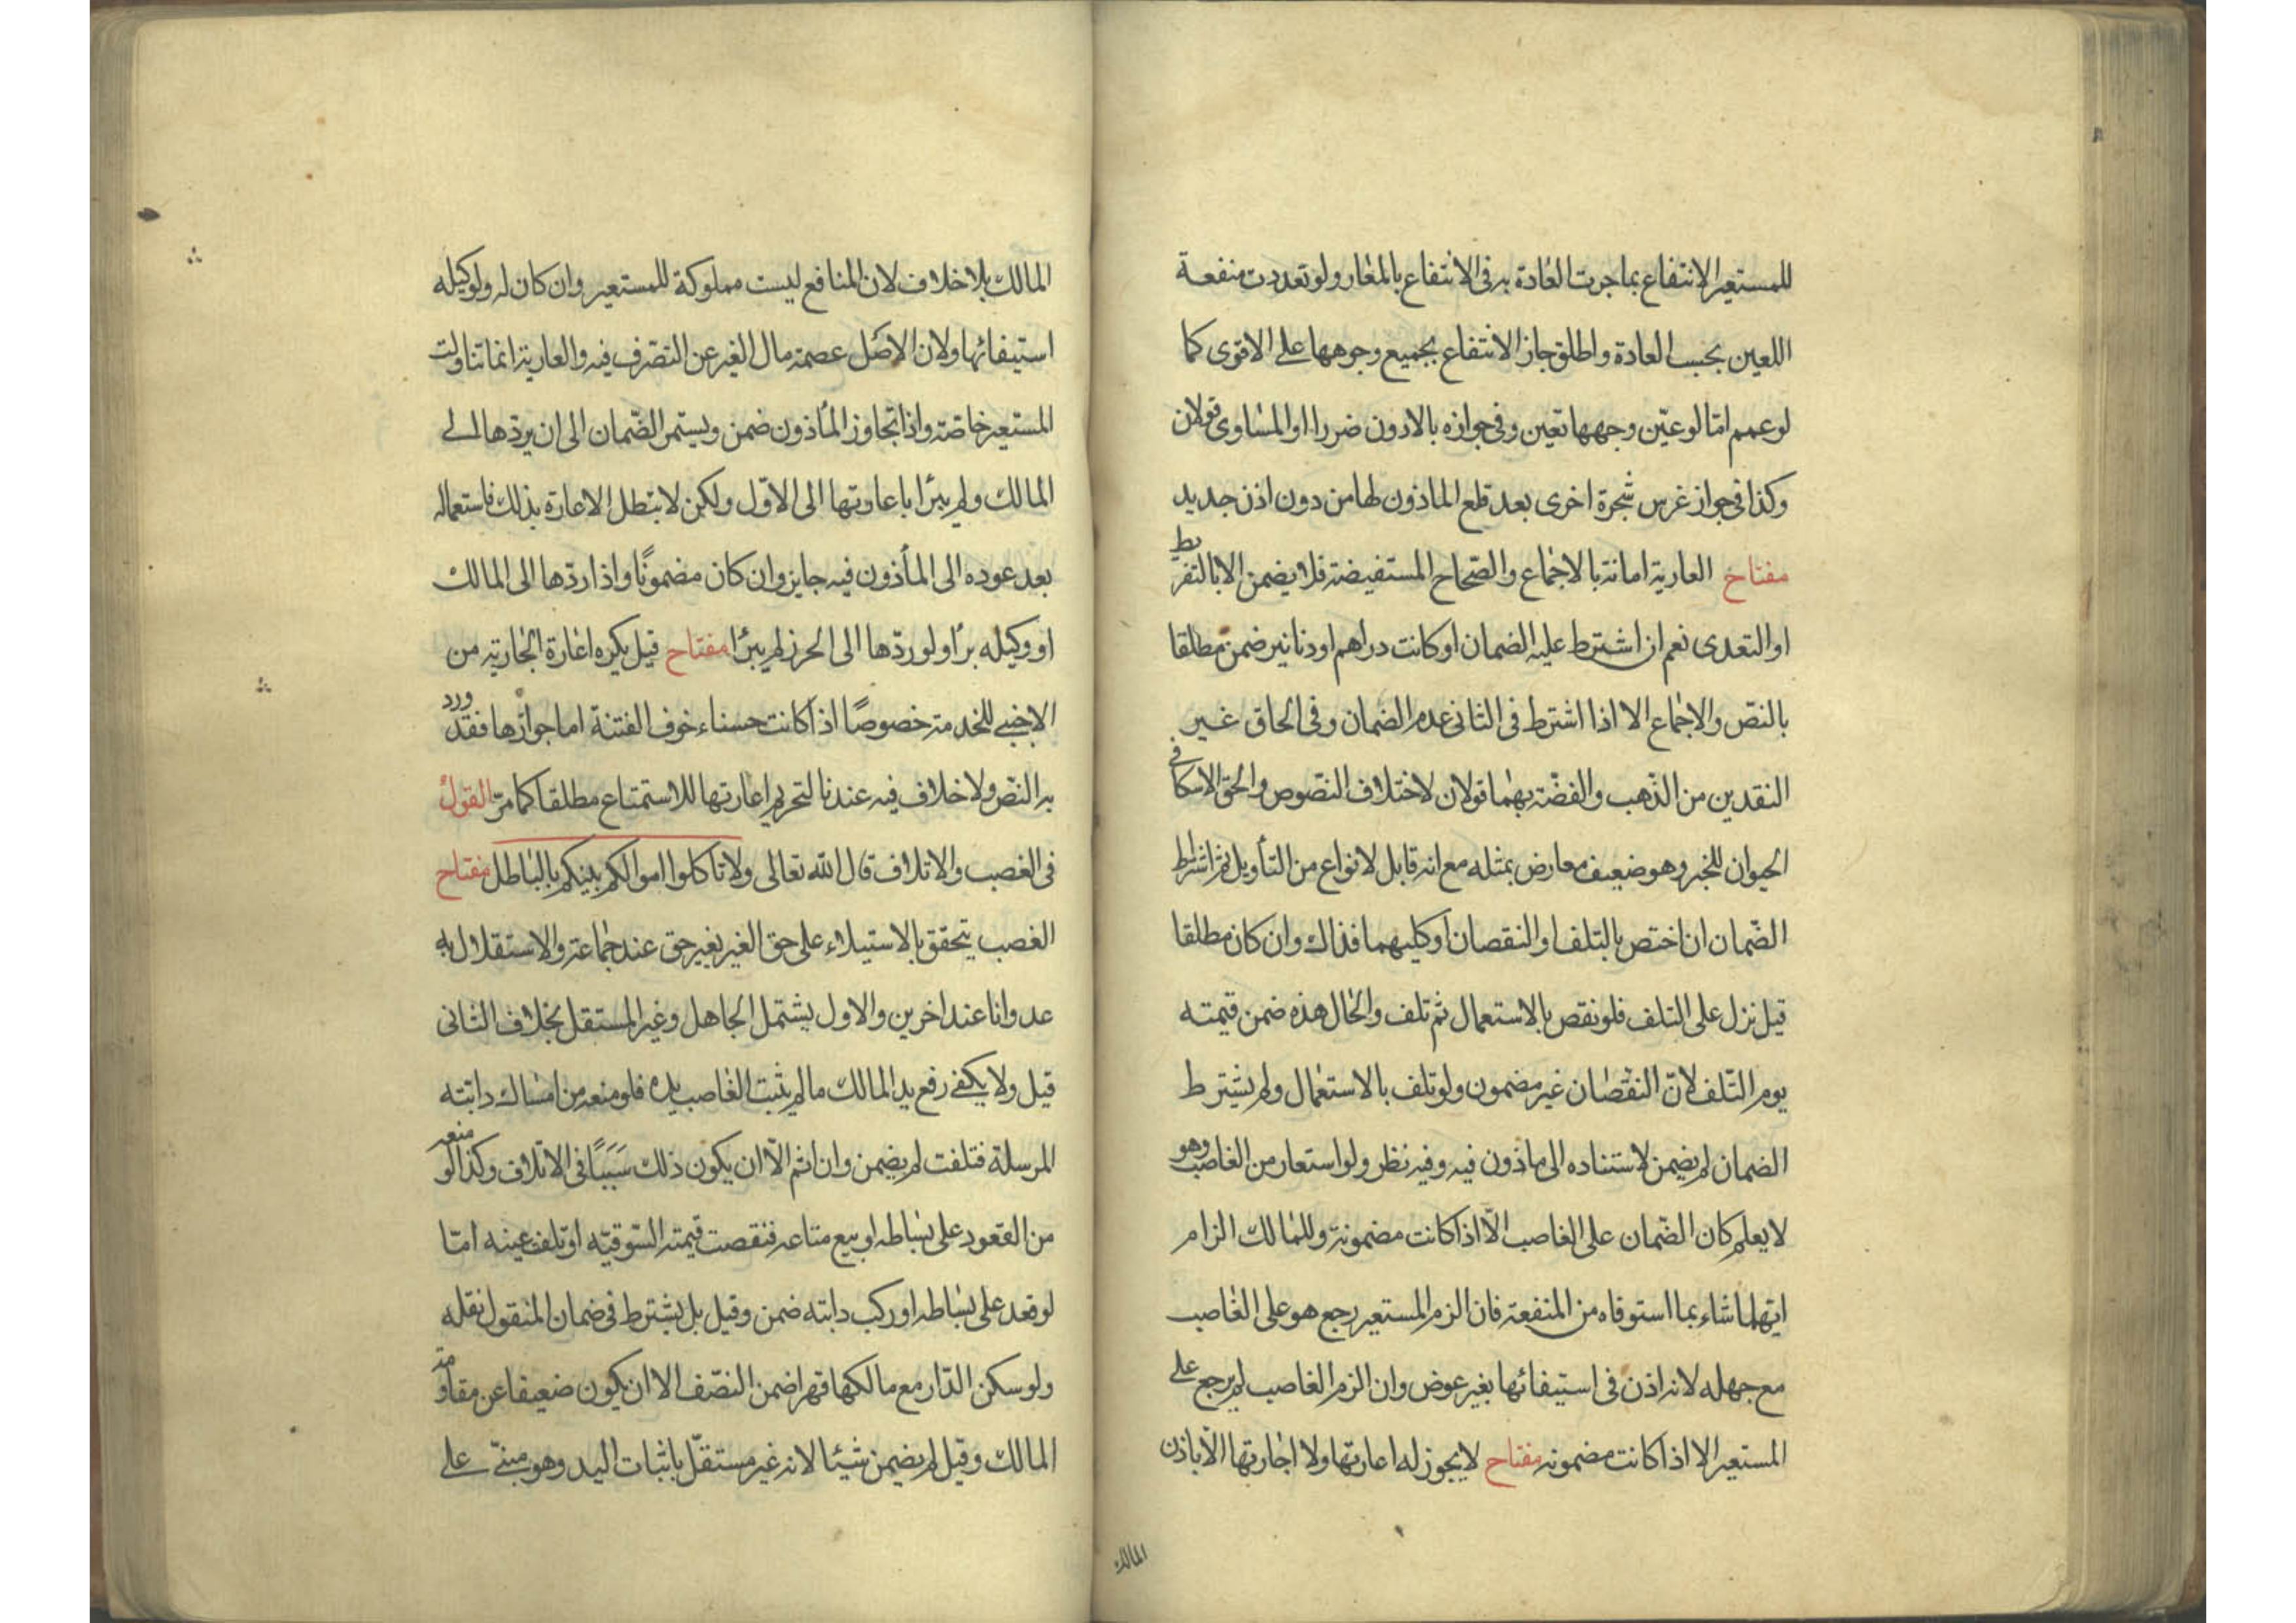 للمستعير الانتفاع بما جرت العادة به فى الانتفاع بالمعار ولو تعددت منفعة
اللعين بحسب العادة واطلق جاز الانتفاع بجميع وجوهها على الاقوى كما
لو عمم امّا لو عيّن وجهها تعين وفى جوازه بالادون ضررا او المساوى قولان
وكذا فى جواز غرس شجرة اخرى بعد قلع الماذون لها من دون اذن جديد
مفتاح العارية امانة بالاجماع والصّحاح المستفيضة فلا يضمن الا بالتفريط
او التعدى نعم ان اشترط عليه الضمان او كانت دراهم او دنانير ضمن مطلقا
بالنصّ والاجماع الا اذا اشترط فى الثانى عدم الضمان وفى الحاق غير
النقدين من الذّهب والفضّة بهما قولان لاختلاف النصّوص والحق الاسكافى
الحيوان للخبر وهو ضعيف معارض بمثله مع انه قابل لانواع من التأويل ثم اشتراط
الضّمان ان اختص بالتلف او النقصان او كليهما فذاك وان كان مطلقا
قيل نزل على التلف فلو نقص بالاستعمال ثم تلف والحال هذه ضمن قيمته
يوم التّلف لانّ النقصان غير مضمون ولو تلف بالاستعمال ولم يشترط
الضمان لم يضمن لاستناده الى ماذون فيه وفيه نظر ولو استعار من الغاصب وهو
لا يعلم كان الضّمان على الغاصب الّا اذا كانت مضمونة وللمالك الزام
ايّهما شاء بما استوفاه من المنفعة فان الزم المستعير رجع هو على الغاصب
مع جهله لانه اذن فى استيفائها بغير عوض وان الزم الغاصب لم يرجع على
المستعير الا اذا كانت مضمونة مفتاح لا يجوز له اعارتها ولا اجارتها الّا باذن
المالك
المالك بلا خلاف لان المنافع ليست مملوكة للمستعير وان كان له ولوكيله
استيفائها ولان الاصَل عصمة مال الغير عن التصّرف فيه والعارية انما تناولت
المستعير خاصّة واذا تجاوز المأذون ضمن ويستمر الضّمان الى ان يردّها الى
المالك ولم يبرا باعادتها الى الاوّل ولكن لا بتطل الاعارة بذلك فاستعماله
بعد عوده الى المأذون فيه جايز وان كان مضمونًا واذا ردّها الى المالك
او وكيله برأ ولو ردّها الى الحرز لم يبرأ مفتاح قيل يكره اعارة الجارية من
الاجنبى للخدمة خصوصًا اذا كانت حسناء خوف الفتنة اما جوازها فقد ورد
به النصّ ولا خلاف فيه عندنا لتحريم اعارتها للاستمتاع مطلقا كما مرّ القول
فى الغصب والاتلاف قال الله تعالى ولا تاكلوا اموالكم بينكم بالباطل مفتاح
الغصب يتحقق بالاستيلاء على حق الغير بغير حق عند جماعة والاستقلال به
عدوانا عند اخرين والاول يشتمل الجاهل وغير المستقل بخلاف الثانى
قيل ولا يكفى رفع يد المالك ما لم يثبت الغاصب يده فلو منعه من امساك دابّته
المرسلة فتلفت لم يضمن وان اثم الّا ان يكون ذلك سَبَبًا فى الاتلاف وكذا لو منعه
من القعود على بساطه او بيع متاعه فنقصت قيمته السّوقيّه او تلف عينه امّا
لو قعد على بساطه او ركب دابته ضمن وقيل بل يشترط فى ضمان المنقول نقله
ولو سكن الدّار مع مالكها قهرا ضمن النصّف الا ان يكون ضعيفا عن مقاومة
المالك وقيل لم يضمن شيئا لانه غير مستقلّ باثبات اليد وهو مبنىّ على